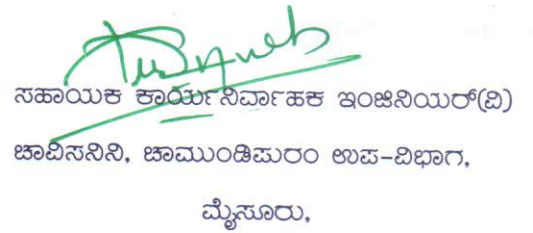 ಸಹಾಯಕ ಕಾರ್ಯನಿರ್ವಾಹಕ ಇಂಜಿನಿಯರ್(ವಿ)
ಚಾವಿಸನಿನಿ, ಚಾಮುಂಡಿಪುರಂ ಉಪ-ವಿಭಾಗ,
ಮೈಸೂರು,